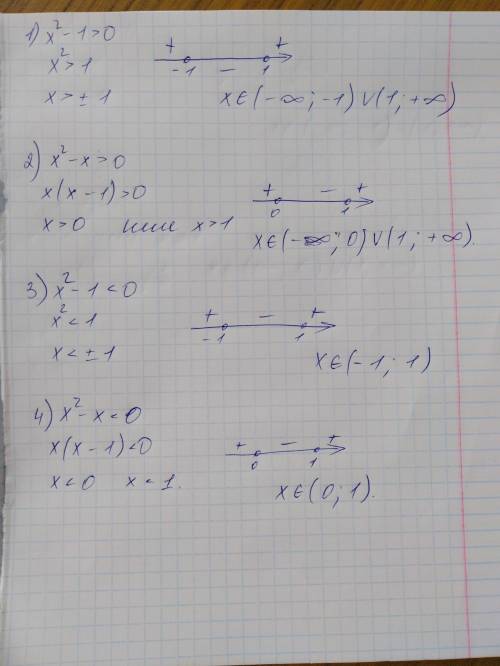 1) x² - 1 > 0
x² > 1
x > ± 1
+ - +
-1 1
x ∈ (-∞; -1) ∪ (1; +∞)
2) x² - x > 0
x(x - 1) > 0
x > 0 или x > 1
+ - +
0 1
x ∈ (-∞; 0) ∪ (1; +∞).
3) x² - 1 < 0
x² < 1
x < ± 1
+ - +
-1 1
x ∈ (-1; 1)
4) x² - x < 0
x(x - 1) < 0
x < 0 x < 1.
+ - +
0 1
x ∈ (0; 1).